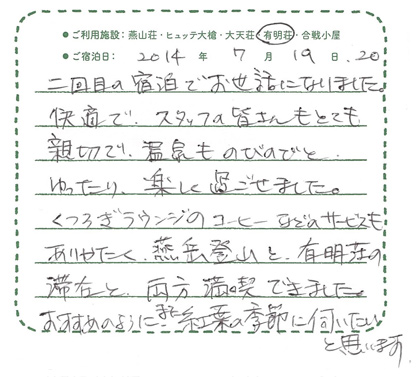 ●ご利用施設：燕山荘・ヒュッテ大槍・大天荘・有明荘・合戦小屋
●ご宿泊日： 2014 年 7 月 19 日 . 20
二回目の宿泊でお世話になりました。
快適で、スタッフの皆さんもとても
親切で、温泉ものびのびと、
ゆったり、楽しく過ごせました。
くつろぎラウンジのコーヒーなどのサービスも
ありがたく、燕岳登山と、有明荘の
滞在と、両方満喫できました。
おすすめのように、また紅葉の季節に伺いたい
と思います。